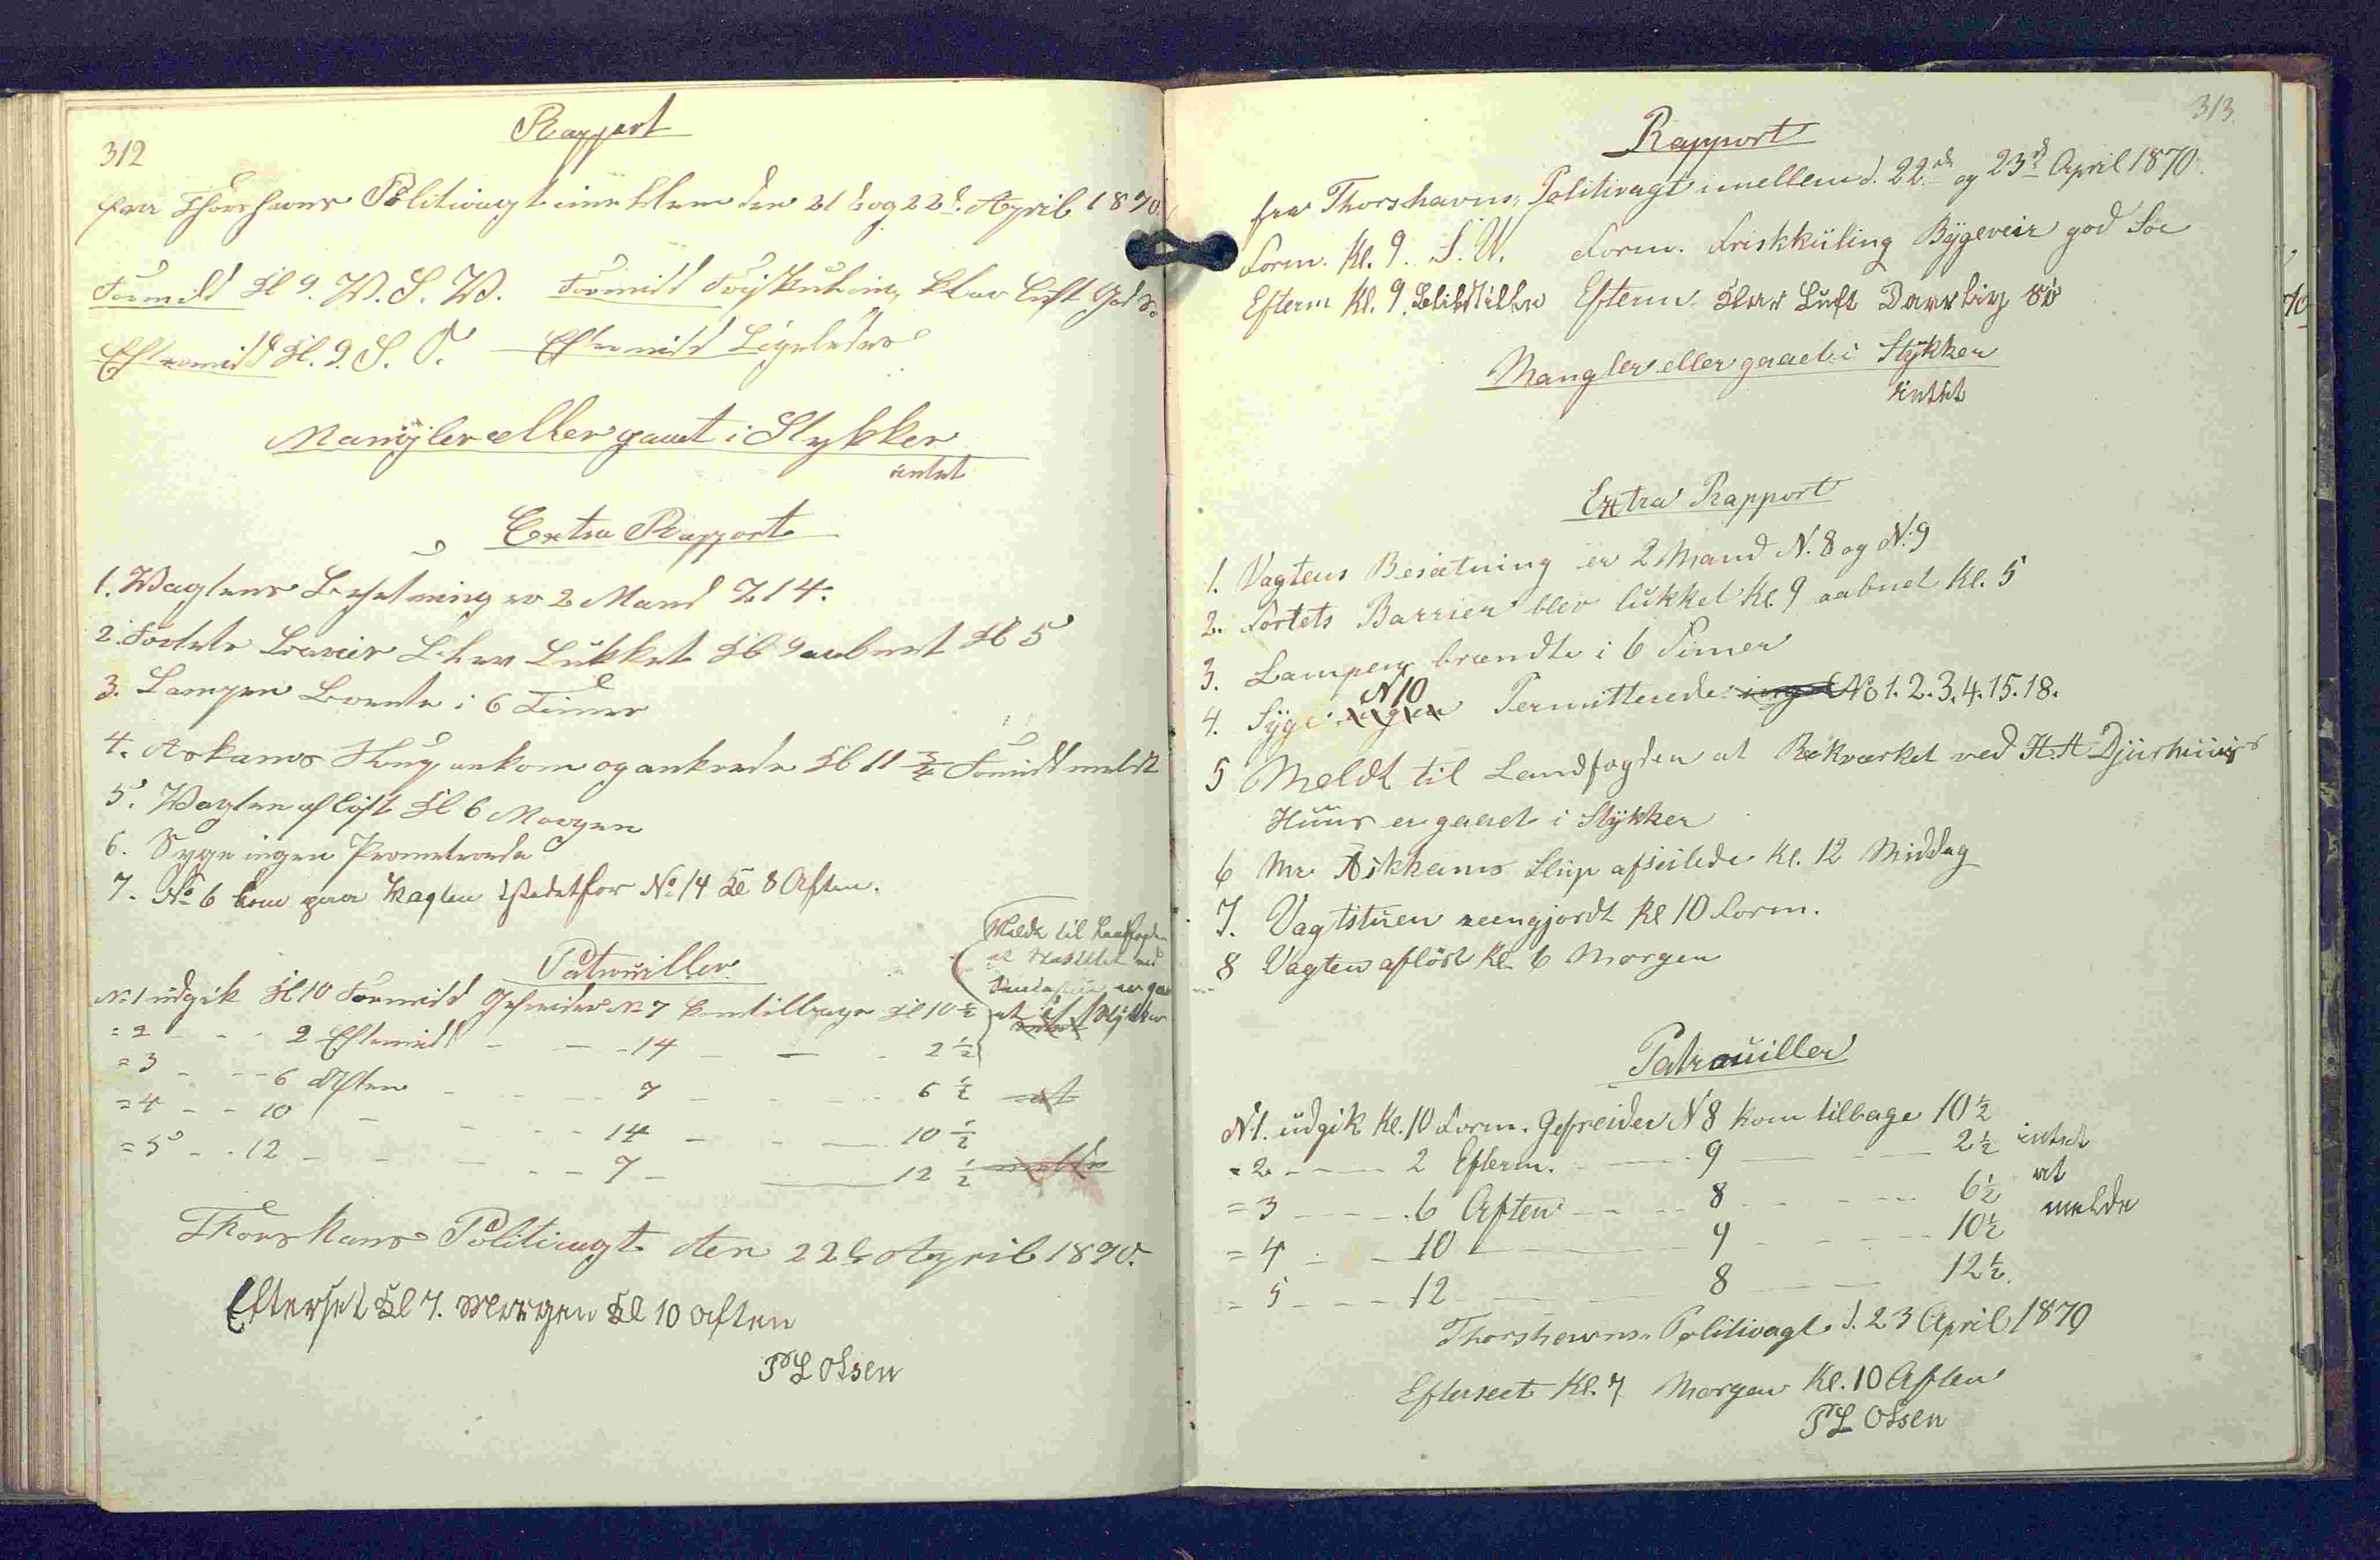 312
Rapport
fra Thorshavns Politivagt imellem den 21d og 22d April 1870.
Formidd Kl 9. W. S. W. Formidd Friskkuling klar Luft God Sø
Eftermidd Kl. 9. S. O. Eftermidd Ligeledes
Mangler eller gaaet i Stykker
intet
Extra Rapport
1. Wagtens Besetning er 2 Mand 7. 14.
2. Fortets Barier Blev Lukket Kl 9 aabnet Kl 5
3. Lampen Brente i 6 Timer
4. Askams Slup ankom og ankrede Kl 11 3/4 Formidd meldt
5. Wagten afløst Kl 6 Morgen
6. Syge ingen Prometerede
7. No 6 kom paa Wagten istedetfor No 14 Kl 8 Aften.
Patruiller
Meldt til Landfogden
at ved
er gaa
et i Stykker
No 1 udgik Kl 10 Formidd Gefreider No 7 kom tilbage Kl 10 1/2
= 2 - - - 2 Eftermidd - - - 14 - - - 2 1/2
= 3 - - - 6 Aften - - - 7 - - - 6 1/2 at
= 4 - - 10 - - - 14 - - - 10 1/2
= 5 - - 12 - - - 7 - - - 12 1/2 melde
Thorshavns Politivagt den 22d April 1870.
Efterset Kl 7. Morgen Kl 10 Aften
P L Olsen
313
Rapport
fra Thorshavns Politivagt imellem d. 22d og 23d April 1870.
Form. Kl. 9. S. W. Form. Friskküling Bygeveir god Söe
Efterm Kl. 9. Blikstille Efterm. Klar Luft Daarlig Sö
Mangler eller gaaet i Stykker
intet
Extra Rapport
1. Vagtens Besætning er 2 Mand N. 8 og N. 9
2. Fortets Barrier blev lukket Kl. 9 aabnet Kl. 5
3. Lampen brændte i 6 Timer
4. Syge ingen N 10 Permitterede ingen No 1. 2. 3. 4. 15. 18.
5 Meldt til Landfogden at Rekværket ved H. H Djurhuus
Huus er gaaet i Stykker
6 Mr. Askhams Slup afseilede Kl. 12 Middag
7. Vagtstuen reengjordt Kl 10 Form.
8 Vagten aflöst Kl. 6 Morgen
Patrouiller
N 1. udgik Kl. 10 Form. Gefreider N 8 kom tilbage 10 1/2
= 2 - - - 2 Efterm. - - - 9 - - - 2 1/2 intet
= 3 - - - 6 Aften - - - 8 - - - 6 1/2 at
= 4 - - 10 - - - 9 - - - 10 1/2 melde
= 5 - - - 12 - - - 8 - - - 12 1/2.
Thorshavns Politivagt d. 23 April 1870
Efterseet Kl. 7 Morgen Kl. 10 Aften
P L Olsen